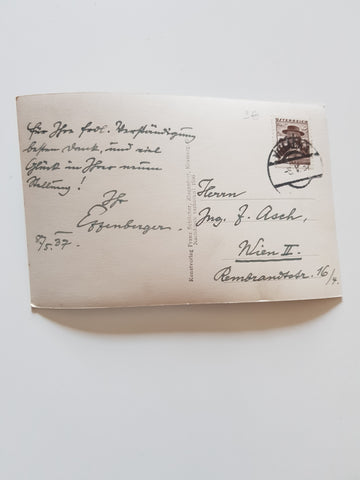 für Ihre frdl. Verständigung
besten Dank, und viel
Glück in Ihrer neuen
Stellung!
Ihr
Effenberger.
5/5. 37.
ÖSTERREICH
Herrn
Ing. F. Asch,
Wien II.
Rembrandtstr. 16/4.
Kunstverlag Franz